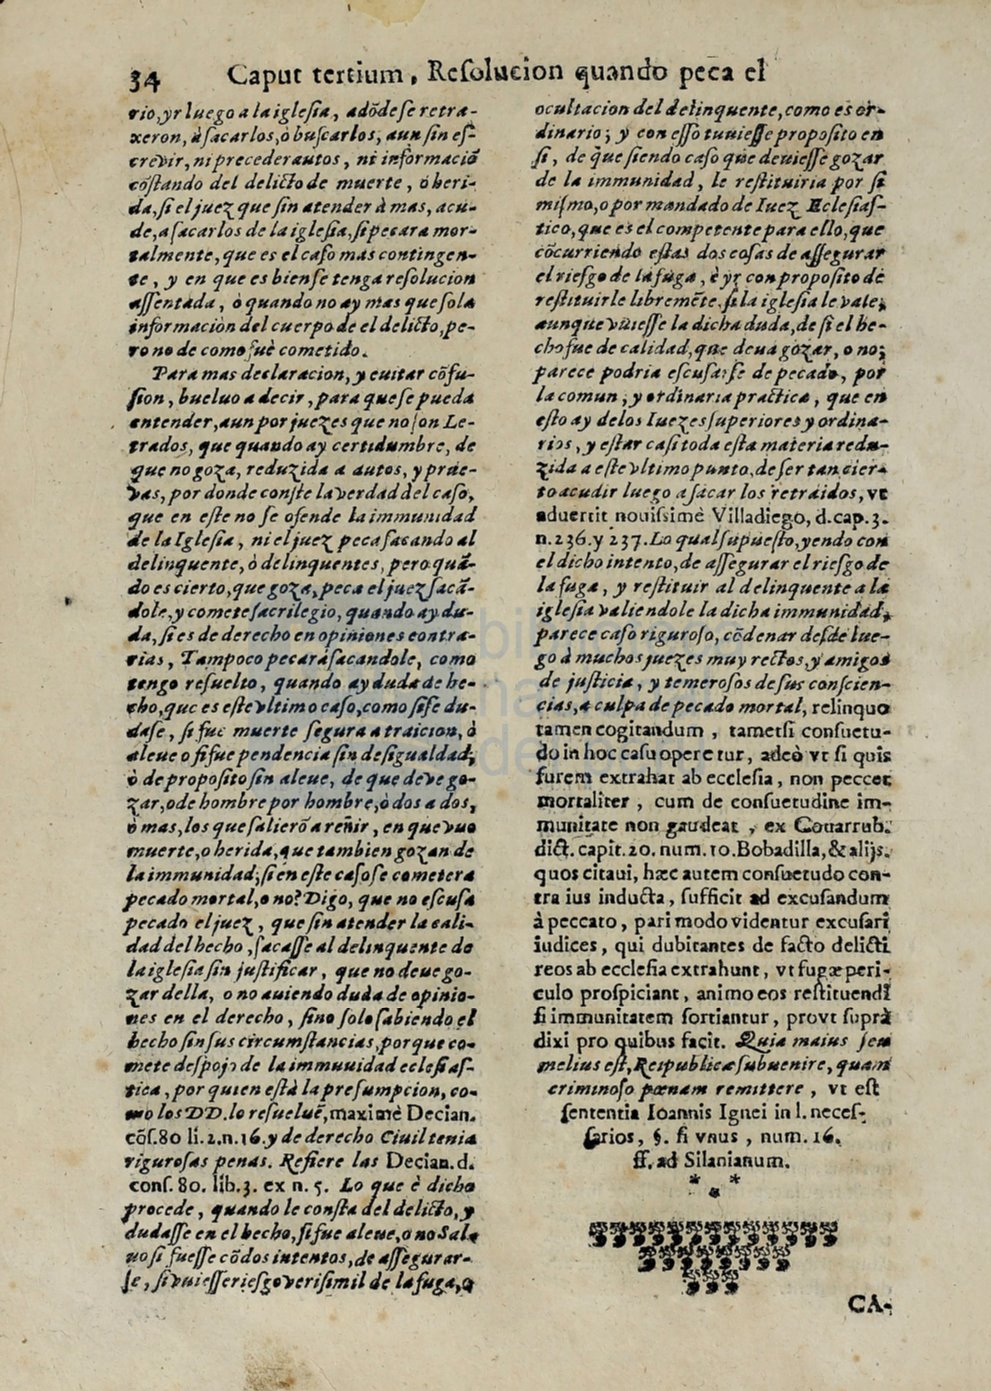 34 Caput tertium, Resolucion quando peca el
rio, yr luego a la iglesia, adõde se retra-
xeron, à sacarlos, ò buscarlos, aun sin es-
crevir, ni preceder autos, ni informaciõ
cõstando del delicto de muerte, ò heri-
da, si el juez que sin atender à mas, acu-
de, a sacarlos de la iglesia, si pecara mor-
talmente, que es el caso mas contingen-
te, y en que es bien se tenga resolucion
assentada, ò quando no ay mas que sola
informaciòn del cuerpo de el delicto, pe-
ro no de como fuè cometido.
Para mas declaracion, y euitar cõfu-
sion, bueluo a decir, para que se pueda
entender, aun por juezes que no son Le-
trados, que quando ay certidumbre, de
que no goza, reduzida a autos, y prue-
vas, por donde conste la verdad del caso,
que en este no se ofende la immunidad
de la Iglesia, ni el juez peca sacando al
delinquente, ò delinquentes, pero quã-
do es cierto, que goza, peca el juez sacã-
dole, y comete sacrilegio, quando ay du-
da, si es de derecho en opiniones contra-
rias, Tampoco pecarà sacandole, como
tengo resuelto, quando ay duda de he-
cho, que es este vltimo caso, como si se du-
dase, si fue muerte segura a traicion, ò
aleue o si fue pendencia sin desigualdad,
ò de proposito sin aleue, de que deve go-
zar, o de hombre por hombre, ò dos a dos,
ò mas, los que salierõ a reñir, en que vuo
muerte, o herida, que tambien gozan de
la immunidad; si en este caso se cometera
pecado mortal, o no? Digo, que no escusa
pecado el juez, que sin atender la cali-
dad del hecho, sacasse al delinquente de
la iglesia sin justificar, que no deue go-
zar della, o no auiendo duda de opinio-
nes en el derecho, sino solo sabiendo el
hecho sin sus circumstancias, porque co-
mete despojo de la immuuidad eclesias-
tica, por quien està la presumpcion, co-
mo los DD. lo resueluẽ, maximè Decian.
cõs. 80 li. 2. n. 16. y de derecho Ciuil tenia
rigurosas penas. Refiere las Decian. d.
cons. 80. lib. 3. ex n. 5. Lo que è dicho
procede, quando le consta del delicto, y
dudasse en el hecho, si fue aleue, o no Sal-
uo si fuesse cõ dos intentos, de assegurar-
se, si vuiesse riesgo verisimil de la fuga, o
ocultacion del delinquente, como es or-
dinario; y con esso tuuiesse proposito en
si, de que siendo caso que deuiesse gozar
de la immunidad, le restituiria por si
mismo, o por mandado de Iuez Eclesias-
tico, que es el competente para ello, que
cõcurriendo estas dos cosas de assegurar
el riesgo de la fuga, è yr con proposito de
restituirle libremẽte, si la iglesia le vale,
aunque vuiesse la dicha duda, de si el he-
cho fue de calidad, que deua gozar, o no;
parece podria escusarse de pecado, por
la comun, y ordinaria practica, que en
esto ay de los Iuezes superiores y ordina-
rios, y estar casi toda esta materia redu-
zida a este vltimo punto, de ser tan cier-
to acudir luego a sacar los retraidos, vt
aduertit nouissimè Villadiego, d. cap. 3.
n. 236. y 237. Lo qual supuesto, yendo con
el dicho intento, de assegurar el riesgo de
la fuga, y restituir al delinquente a la
iglesia valiendole la dicha immunidad,
parece caso riguroso, cõdenar desde lue-
go à muchos juezes muy rectos, y amigos
de justicia, y temerosos de sus conscien-
cias, a culpa de pecado mortal, relinquo
tamen cogitandum, tametsi consuetu-
do in hoc casu operetur, adeò vt si quis
furem extrahat ab ecclesia, non peccet
mortaliter, cum de consuetudine im-
munitate non gaudeat, ex Couarrub.
dict. capit. 20. num. 10. Bobadilla, & alijs.
quos citaui, hæc autem consuetudo con-
tra ius inducta, sufficit ad excusandum
à peccato, pari modo videntur excusari
iudices, qui dubitantes de facto delicti
reos ab ecclesia extrahunt, vt fugæ peri-
culo prospiciant, animo eos restituendi
si immunitatem sortiantur, provt suprà
dixi pro quibus facit. Quia maius seu
melius est, Reipublicæ subuenire, quam
criminoso pœnam remittere, vt est
sententia Ioannis Ignei in l. neces-
sarios, §. si vnus, num. 16.
ff. ad Silanianum.
CA-